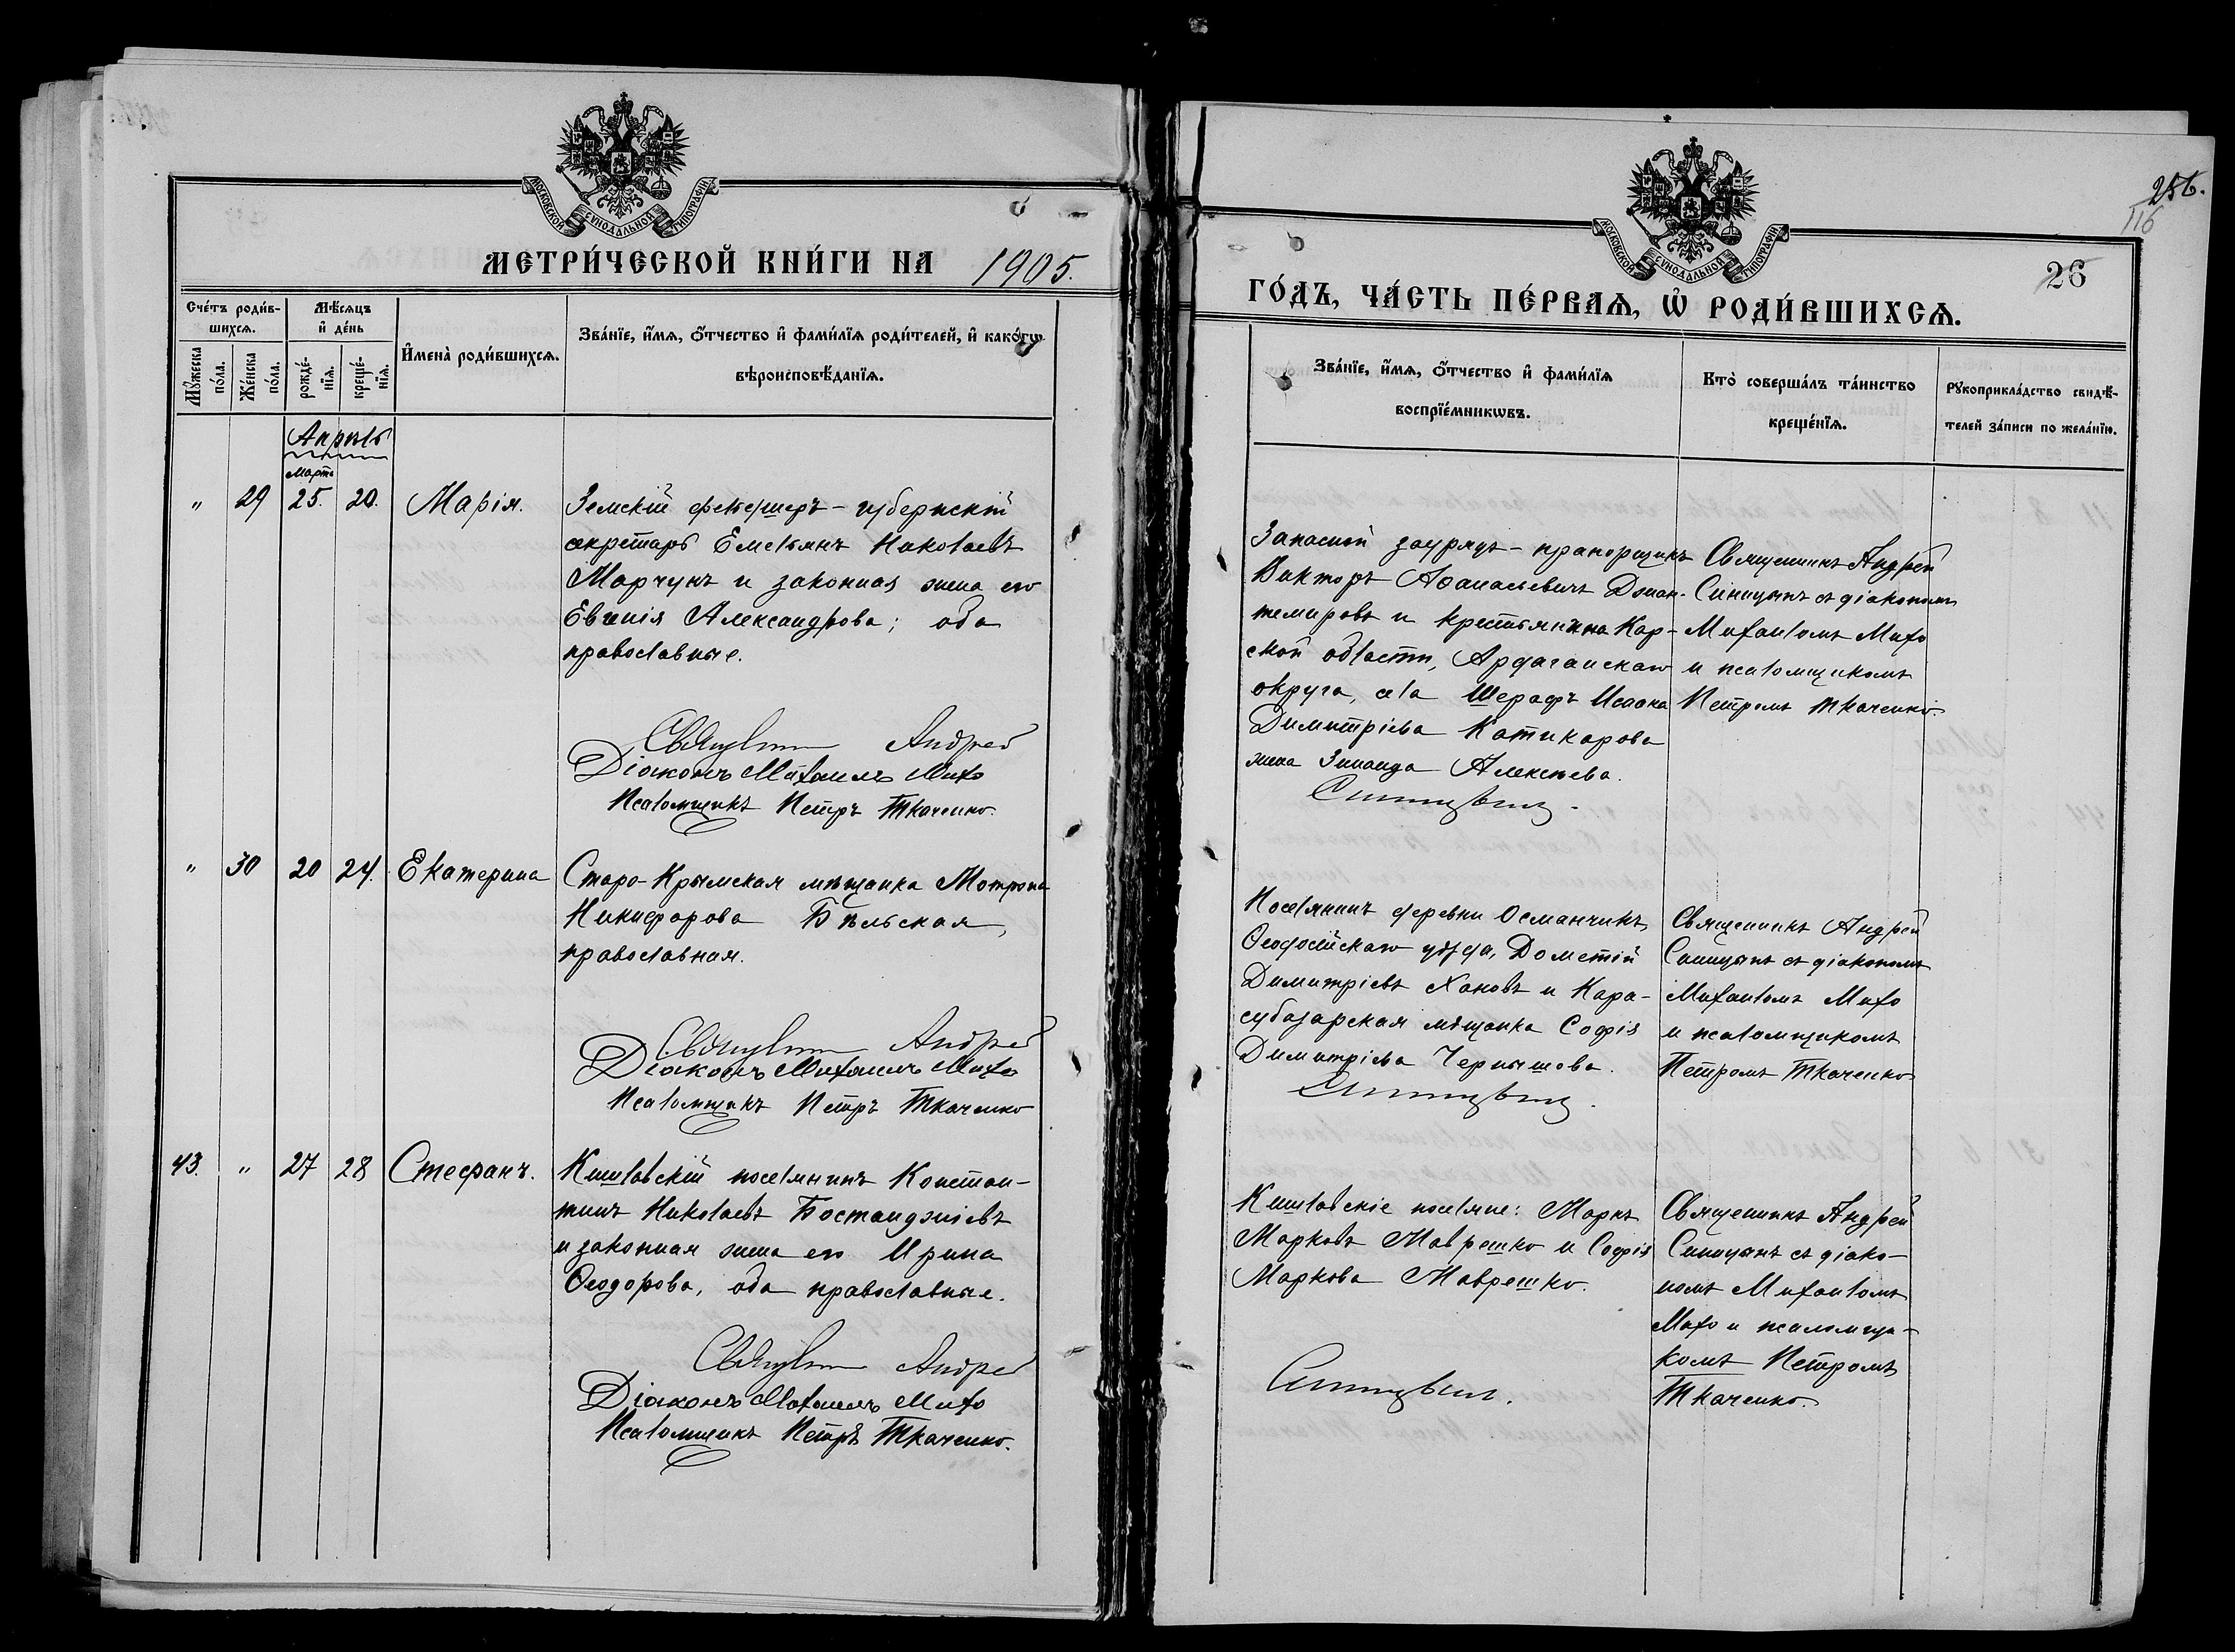 МОСКОВСКОЙ СѴНОДАЛЬНОЙ ТИПОГРАФІИ
МЕТРИ́ЧЕСКОЙ КНИ́ГИ НА 1905.
Сче́тъ роди́в-
шихсѧ.
Мꙋ́жеска по́ла.
Же́нска по́ла.
Мѣ́сѧцъ и҆ де́нь
рожде́-
нїѧ.
креще́-
нїѧ.
И҆мена̀ роди́вшихсѧ.
Зва́нїе, и҆́мѧ, ѻ҆́тчество и҆ фами́лїѧ роди́телей, и҆ како́гѡ
вѣроисповѣ́данїѧ.
Апрѣль
Мартъ
„ 29 25. 20. Марія.
Земскій фельдшеръ - губернскій
секретарь Емельянъ Николаевъ
Марчунъ и законная жена его
Евгенія Александрова; оба
православные.
Священникъ Андрей
Діаконъ Михаилъ Михо
Псаломщикъ Петръ Ткаченко.
„ 30 20 24. Екатерина
Старо-Крымская мѣщанка Мотрона
Никифорова Бѣльская,
православная.
Священникъ Андрей
Діаконъ Михаилъ Михо
Псаломщикъ Петръ Ткаченко
43. „ 27 28 Стефанъ.
Кишлавскій поселянинъ Констан-
тинъ Николаевъ Бостанджіевъ
и законная жена его Ирина
Ѳеодорова, оба православные.
Священникъ Андрей
Діаконъ Михаилъ Михо
Псаломщикъ Петръ Ткаченко.
256.
116
26
МОСКОВСКОЙ СѴНОДАЛЬНОЙ ТИПОГРАФІИ
ГО́ДЪ, ЧА́СТЬ ПЕ́РВАѦ, Ѡ҆ РОДИ́ВШИХСѦ.
Зва́нїе, и҆́мѧ, ѻ҆́тчество и҆ фами́лїѧ
воспрїе́мникѡвъ.
Кто̀ соверша́лъ та́инство
креще́нїѧ.
Рꙋкоприкла́дство свидѣ́-
телей за́писи по жела́нїю.
Запасной зауряд-прапорщикъ
Викторъ Аѳанасьевичъ Джан-
темировъ и крестьянина Кар-
ской области, Ардаганскаго
округа, села Шерафъ Исаака
Димитріева Катикарова
жена Зинаида Алексѣева.
Синицынъ.
Священникъ Андрей
Синицынъ съ діакономъ
Михаиломъ Михо
и псаломщикомъ
Петромъ Ткаченко.
Поселянинъ деревни Османчикъ,
Ѳеодосійскаго уѣзда, Дометій
Димитріевъ Хановъ и Кара-
субазарская мѣщанка Софія
Димитріева Чернышова.
Синицынъ.
Священникъ Андрей
Синицынъ съ діакономъ
Михаиломъ Михо
и псаломщикомъ
Петромъ Ткаченко
Кишлавскіе поселяне: Маркъ
Марковъ Маврешко и Софія
Маркова Маврешко.
Синицынъ.
Священникъ Андрей
Синицынъ съ діако-
номъ Михаиломъ
Михо и псаломщи-
комъ Петромъ
Ткаченко.